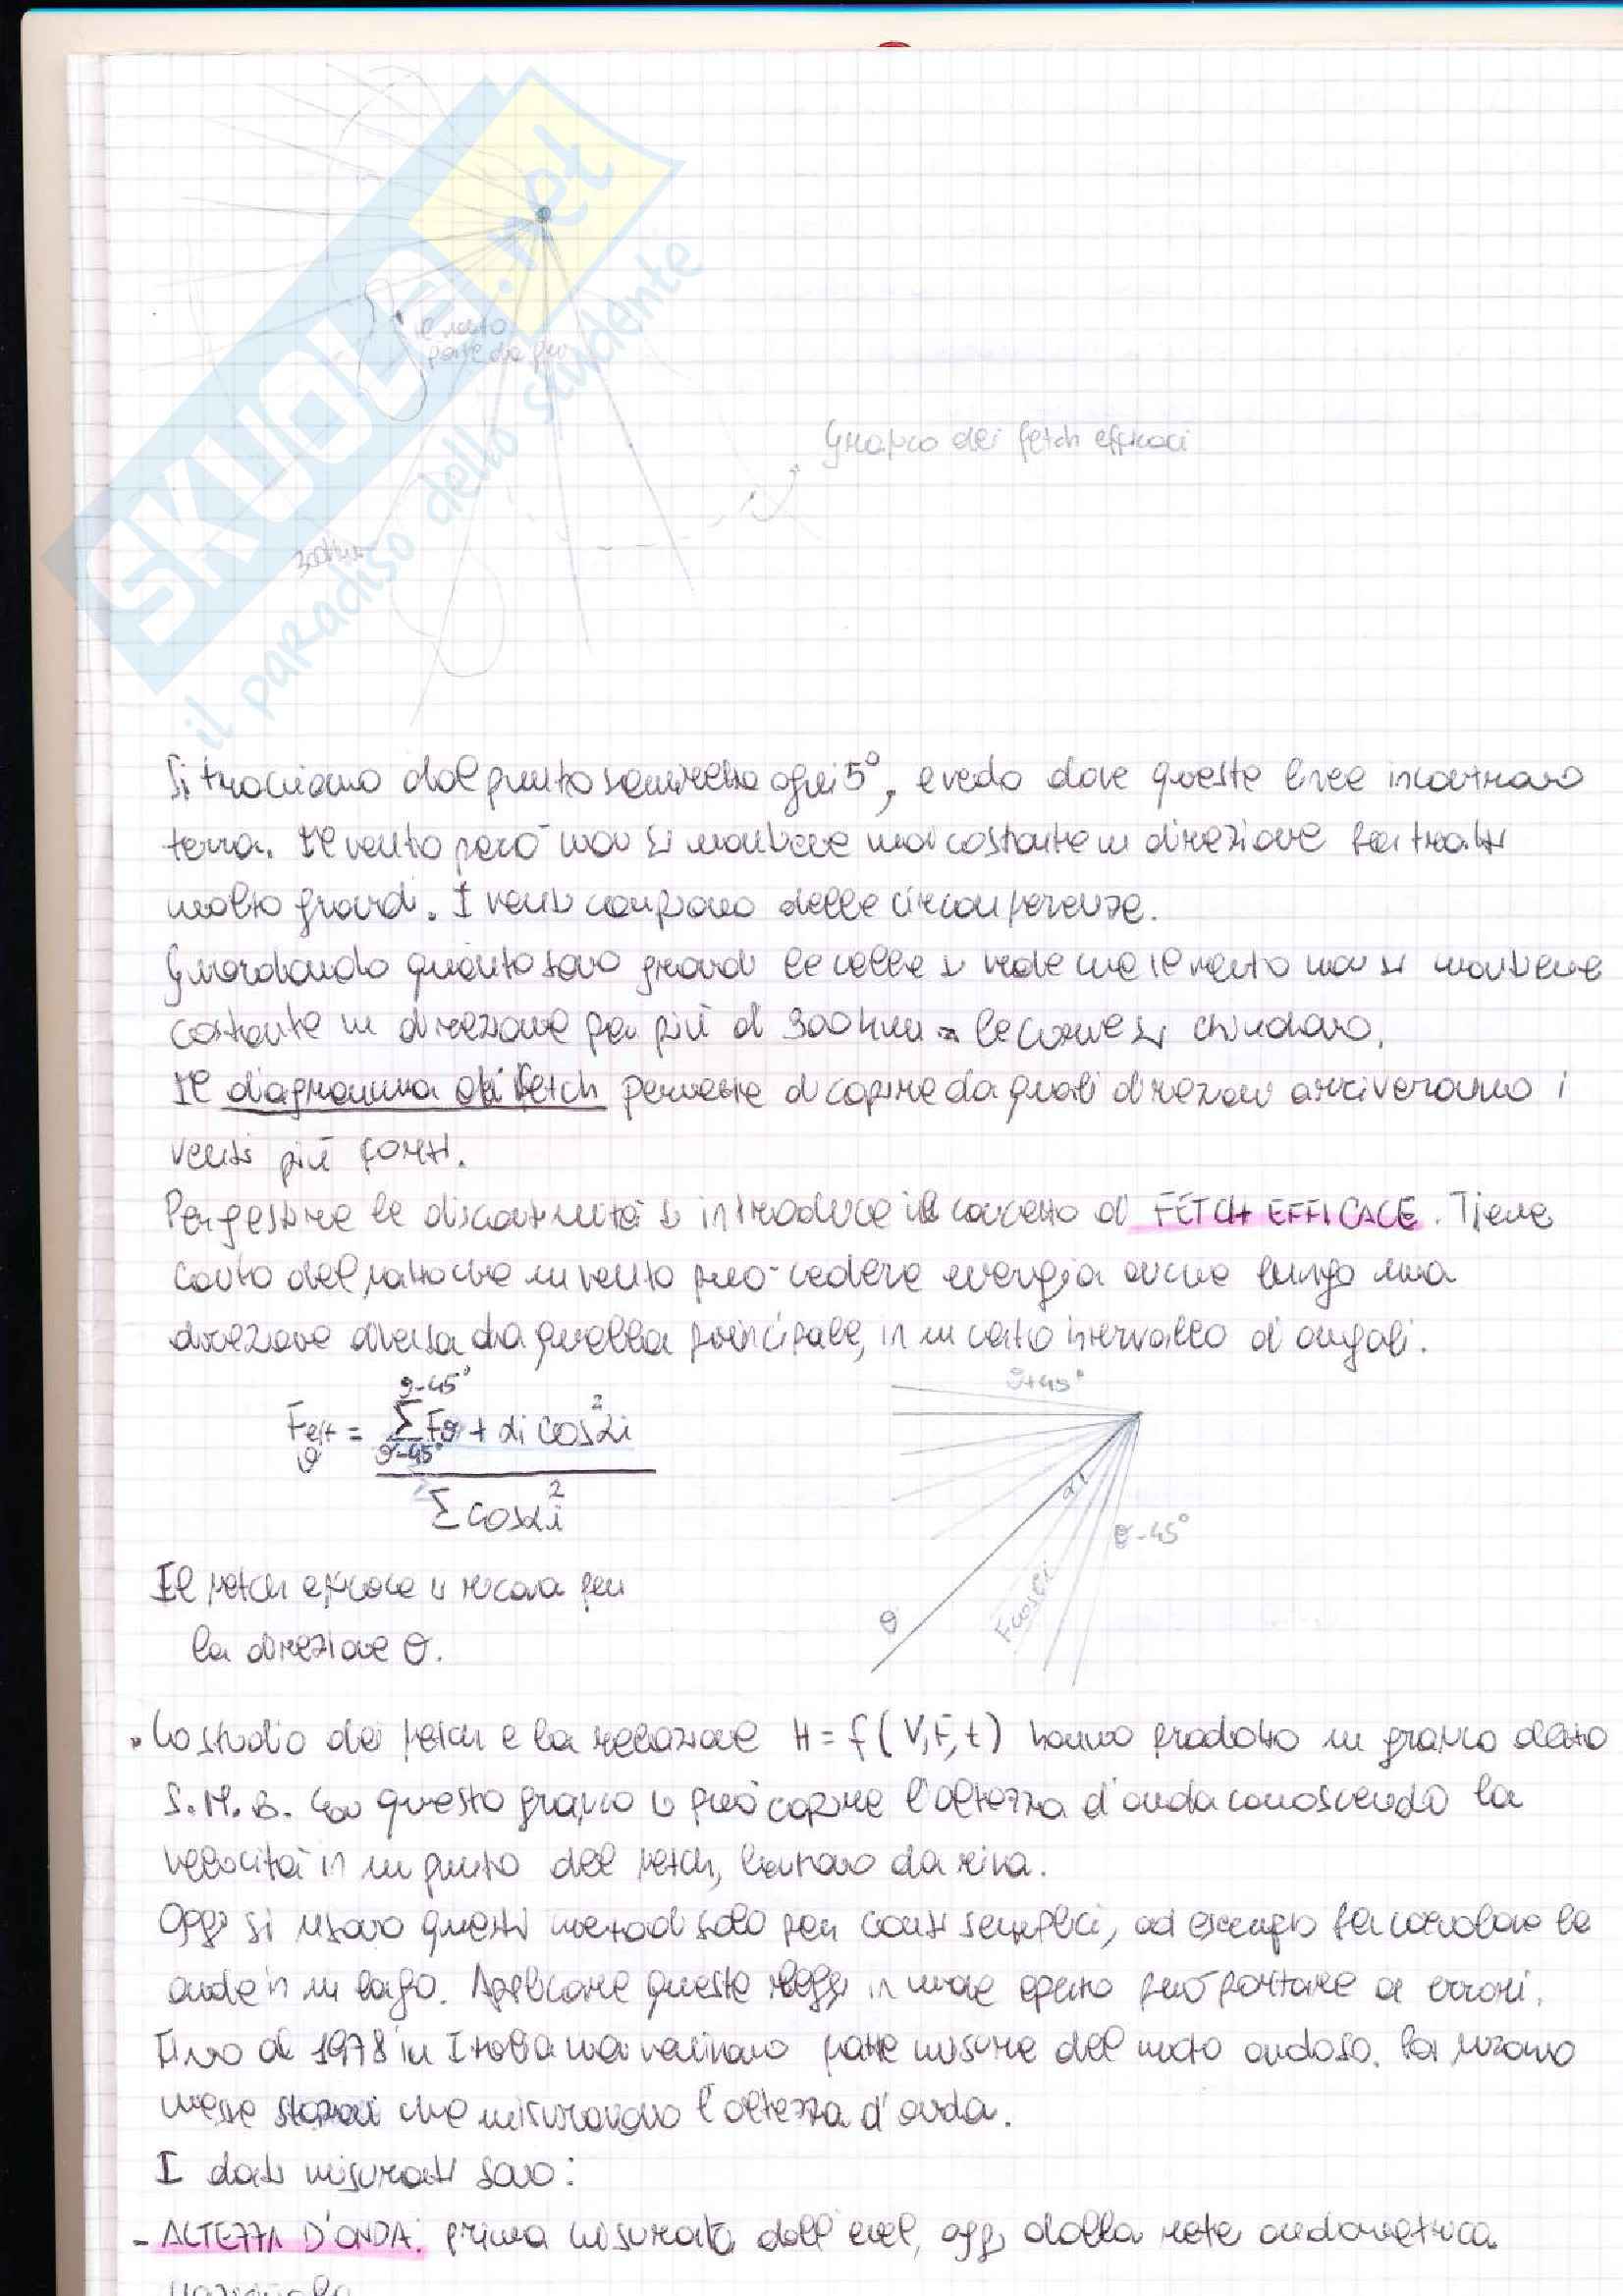 SKUOLA.net
il paradiso dello studente
il vento
parte da qui
Grafico dei fetch efficaci
300km
Si tracciano dal punto semirette ogni 5°, e vedo dove queste linee incontrano
terra. Il vento però non si mantiene mai costante in direzione per tratti
molto grandi. I venti compiono delle circonferenze.
Guardando quanto sono grandi le celle si vede che il vento non si mantiene
costante in direzione per più di 300km → le curve si chiudono.
Il diagramma dei fetch permette di capire da quali direzioni arriveranno i
venti più forti.
Per gestire le discontinuità si introduce il concetto di FETCH EFFICACE. Tiene
conto del fatto che un vento può cedere energia anche lungo una
direzione diversa da quella principale, in un certo intervallo di angoli.
θ-45°
Feff = ΣFθ + αi cos²αi
θ θ-45°
Σ cosαi²
θ+45°
αi
θ-45°
θ
Fcosαi
Il fetch efficace si ricava per
la direzione θ.
• Lo studio dei fetch e la relazione H = f(V,F,t) hanno prodotto un grafico detto
S.M.B. Con questo grafico si può capire l'altezza d'onda conoscendo la
velocità in un punto del fetch, lontano da riva.
Oggi si usano questi metodi solo per conti semplici, ad esempio per calcolare le
onde in un lago. Applicare queste leggi in mare aperto può portare a errori.
Fino al 1978 in Italia non venivano fatte misure del moto ondoso. Poi furono
messe stazioni che misuravano l'altezza d'onda.
I dati misurati sono:
- ALTEZZA D'ONDA: prima misurata dall'enel, oggi dalla rete ondametrica
nazionale